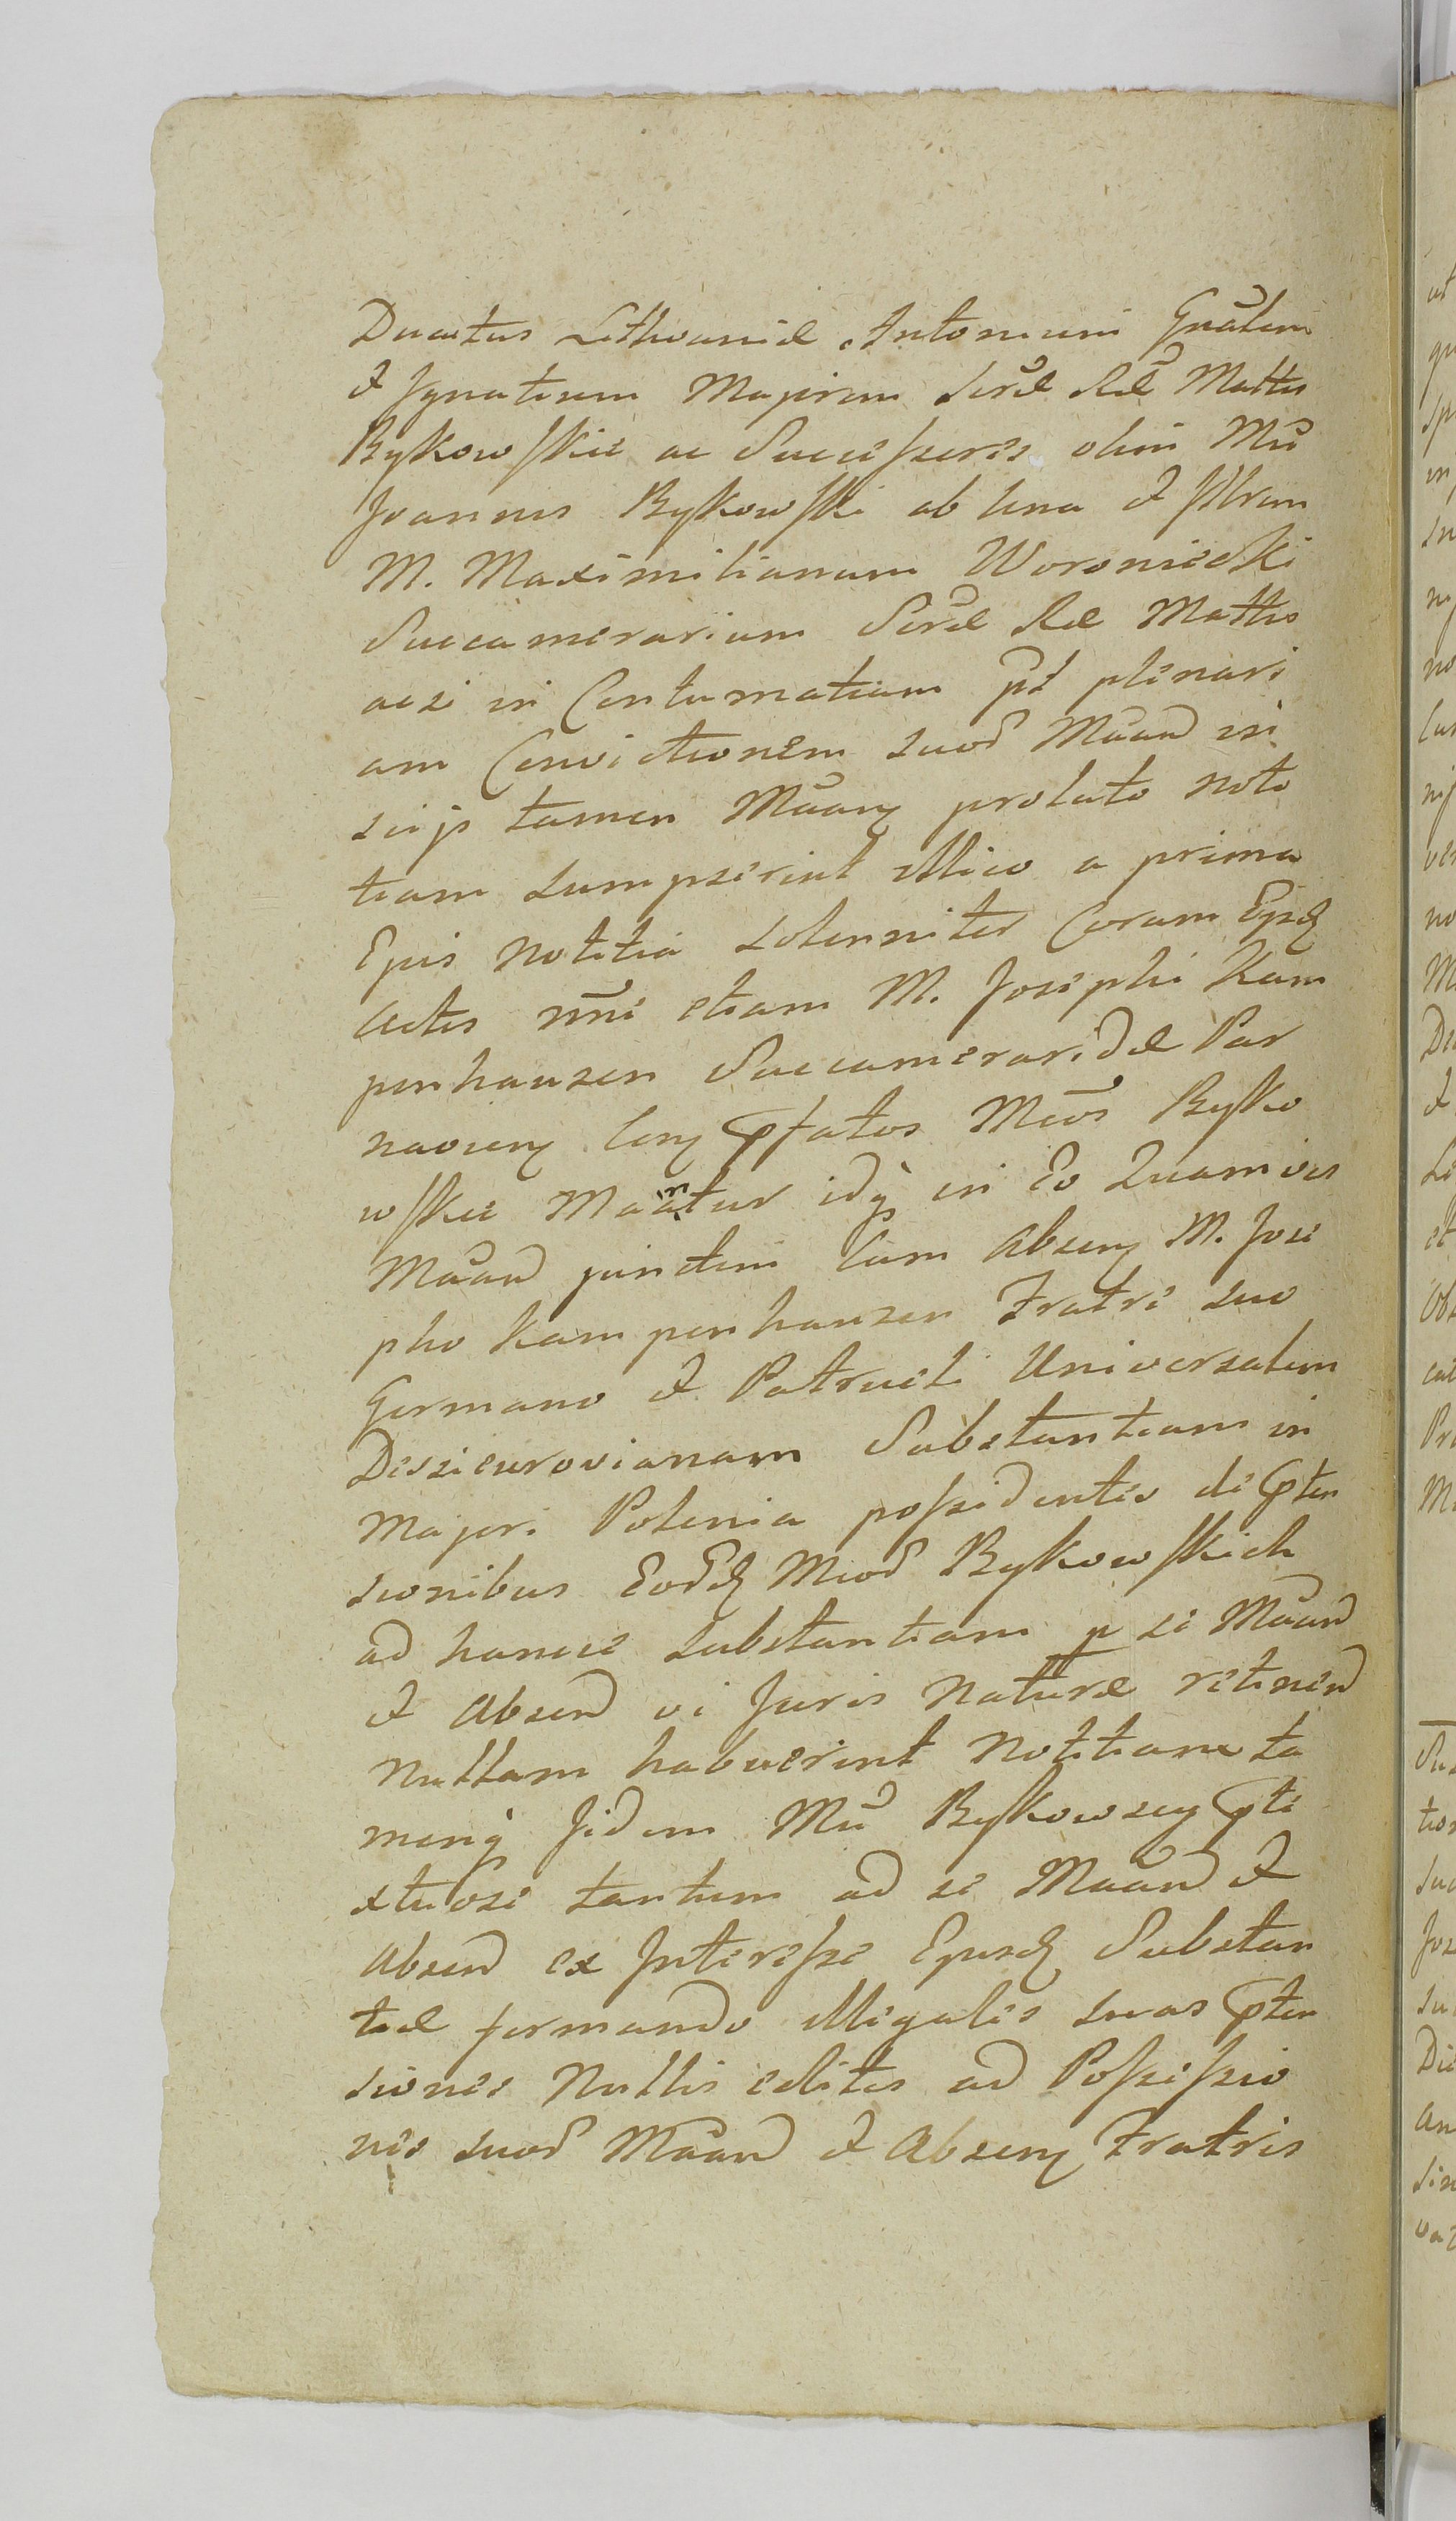 Ducatus Lithvaniæ Antonium Gnãlem
et Ignatium Majorem Seræ Ræ Mattis
Bykowskie ac Successores olim Mci
Joannis Bykowski ab una et Illrem
M. Maximilianum Woroniecki
Succamerarium Seræ Ræ Mattis
acsi in Contumatiam pt plenari
am Convictionem suor Maãn in
scijs tamen Maãnq prolato noti
tiam sumpserint illico a prima
Ejus notitia solenniter Coram Ejsd
Actis nni etiam M. Josephi Kam
penhauzen Succameraridæ Par
naviens Cons Pfatos Mcos Byko
wskie Maãtur idq in Eo Quamvis
Maãn junctim Cum Absens M. Jose
pho Kampenhauzen Fratre suo
Germano et Patrueli Universalem
Deszieurovianam Substantiam in
Majori Polonia possidentes de Pten
sionibus Eord Mcor Bykowskich
ad hancce substantiam p se Maãn
et Absen vi Juris Naturæ retinen
Nullam habuerint Notitiam ta
menq Iidem Mci Bykowscy Pte
xtuose tantum ad se Maãn et
Absen ex Interesse Ejusd Substan
tiæ formando illegales suas Pten
siones Nullis editis ad Possessio
nes suor Maãn et Absens Fratris